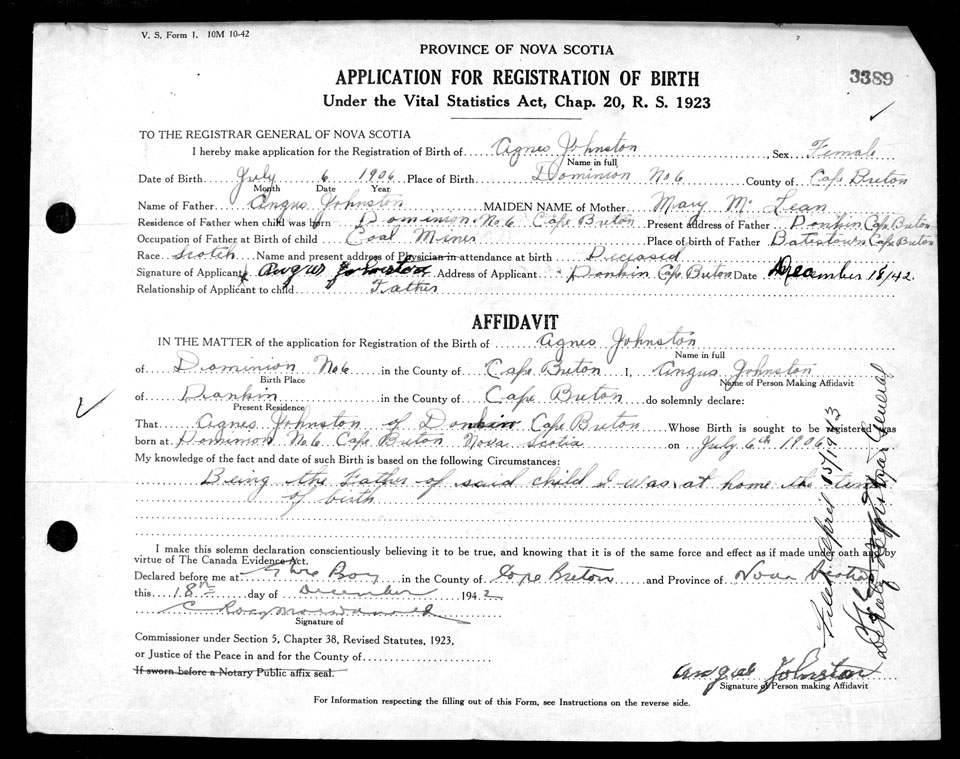 V. S. Form 1. 10M 10-42
PROVINCE OF NOVA SCOTIA
APPLICATION FOR REGISTRATION OF BIRTH
3389
Under the Vital Statistics Act, Chap. 20, R. S. 1923
TO THE REGISTRAR GENERAL OF NOVA SCOTIA
I hereby make application for the Registration of Birth of Agnes Johnston, Sex Female
Name in full
Date of Birth July 6 1906 Place of Birth Dominion No 6 County of Cape Breton
Month Date Year
Name of Father Angus Johnston MAIDEN NAME of Mother Mary Mc Lean
Residence of Father when child was born Dominion No 6 Cape Breton Present address of Father Donkin Cape Breton
Occupation of Father at Birth of child Coal Miner Place of birth of Father Cape Breton
Race Scotch Name and present address of Physician in attendance at birth Diceased
Signature of Applicant x Angus Johnston Address of Applicant Donkin Cape Breton Date December 18/42.
Relationship of Applicant to child Father
AFFIDAVIT
IN THE MATTER of the application for Registration of the Birth of Agnes Johnston
Name in full
of Dominion No 6 in the County of Cape Breton I, Angus Johnston
Birth Place Name of Person Making Affidavit
of Donkin in the County of Cape Breton do solemnly declare:
Present Residence
That Agnes Johnston of Donkin Cape Breton Whose Birth is sought to be registered was
born at Dominion No 6 Cape Breton Nova Scotia on July 6th 1906
My knowledge of the fact and date of such Birth is based on the following Circumstances:
Being the Father of said child I was at home the time
of birth
I make this solemn declaration conscientiously believing it to be true, and knowing that it is of the same force and effect as if made under oath and by
virtue of The Canada Evidence Act.
Declared before me at Glace Bay in the County of Cape Breton and Province of Nova Scotia
this 18th day of December 1942
Signature of
Commissioner under Section 5, Chapter 38, Revised Statutes, 1923,
or Justice of the Peace in and for the County of
If sworn before a Notary Public affix seal.
Angus Johnston
Signature of Person making Affidavit
For Information respecting the filling out of this Form, see Instructions on the reverse side.
Filed April 15/1943
Deputy Registrar General